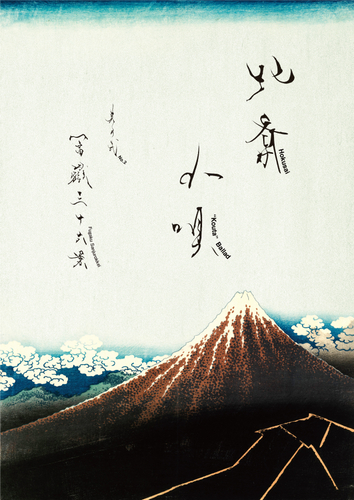 北斎
Hokusai
小唄
"Kouta" Ballad
其の弐
富嶽三十六景
Fugaku Sanjurokkei